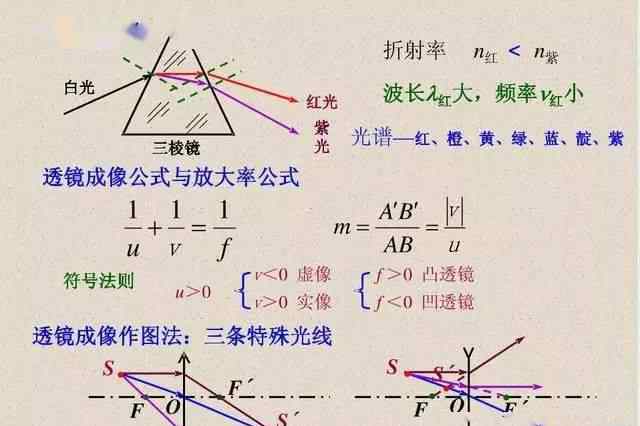 折射率 n红 < n紫
白光
红光
紫光
三棱镜
波长λ红大，频率ν红小
光谱—红、橙、黄、绿、蓝、靛、紫
透镜成像公式与放大率公式
1/u + 1/v = 1/f
m = A′B′/AB = |v|/u
符号法则 u>0 { v<0 虚像 { f>0 凸透镜
v>0 实像 f<0 凹透镜
透镜成像作图法：三条特殊光线
S F O F′ S′
S S′ F O F′